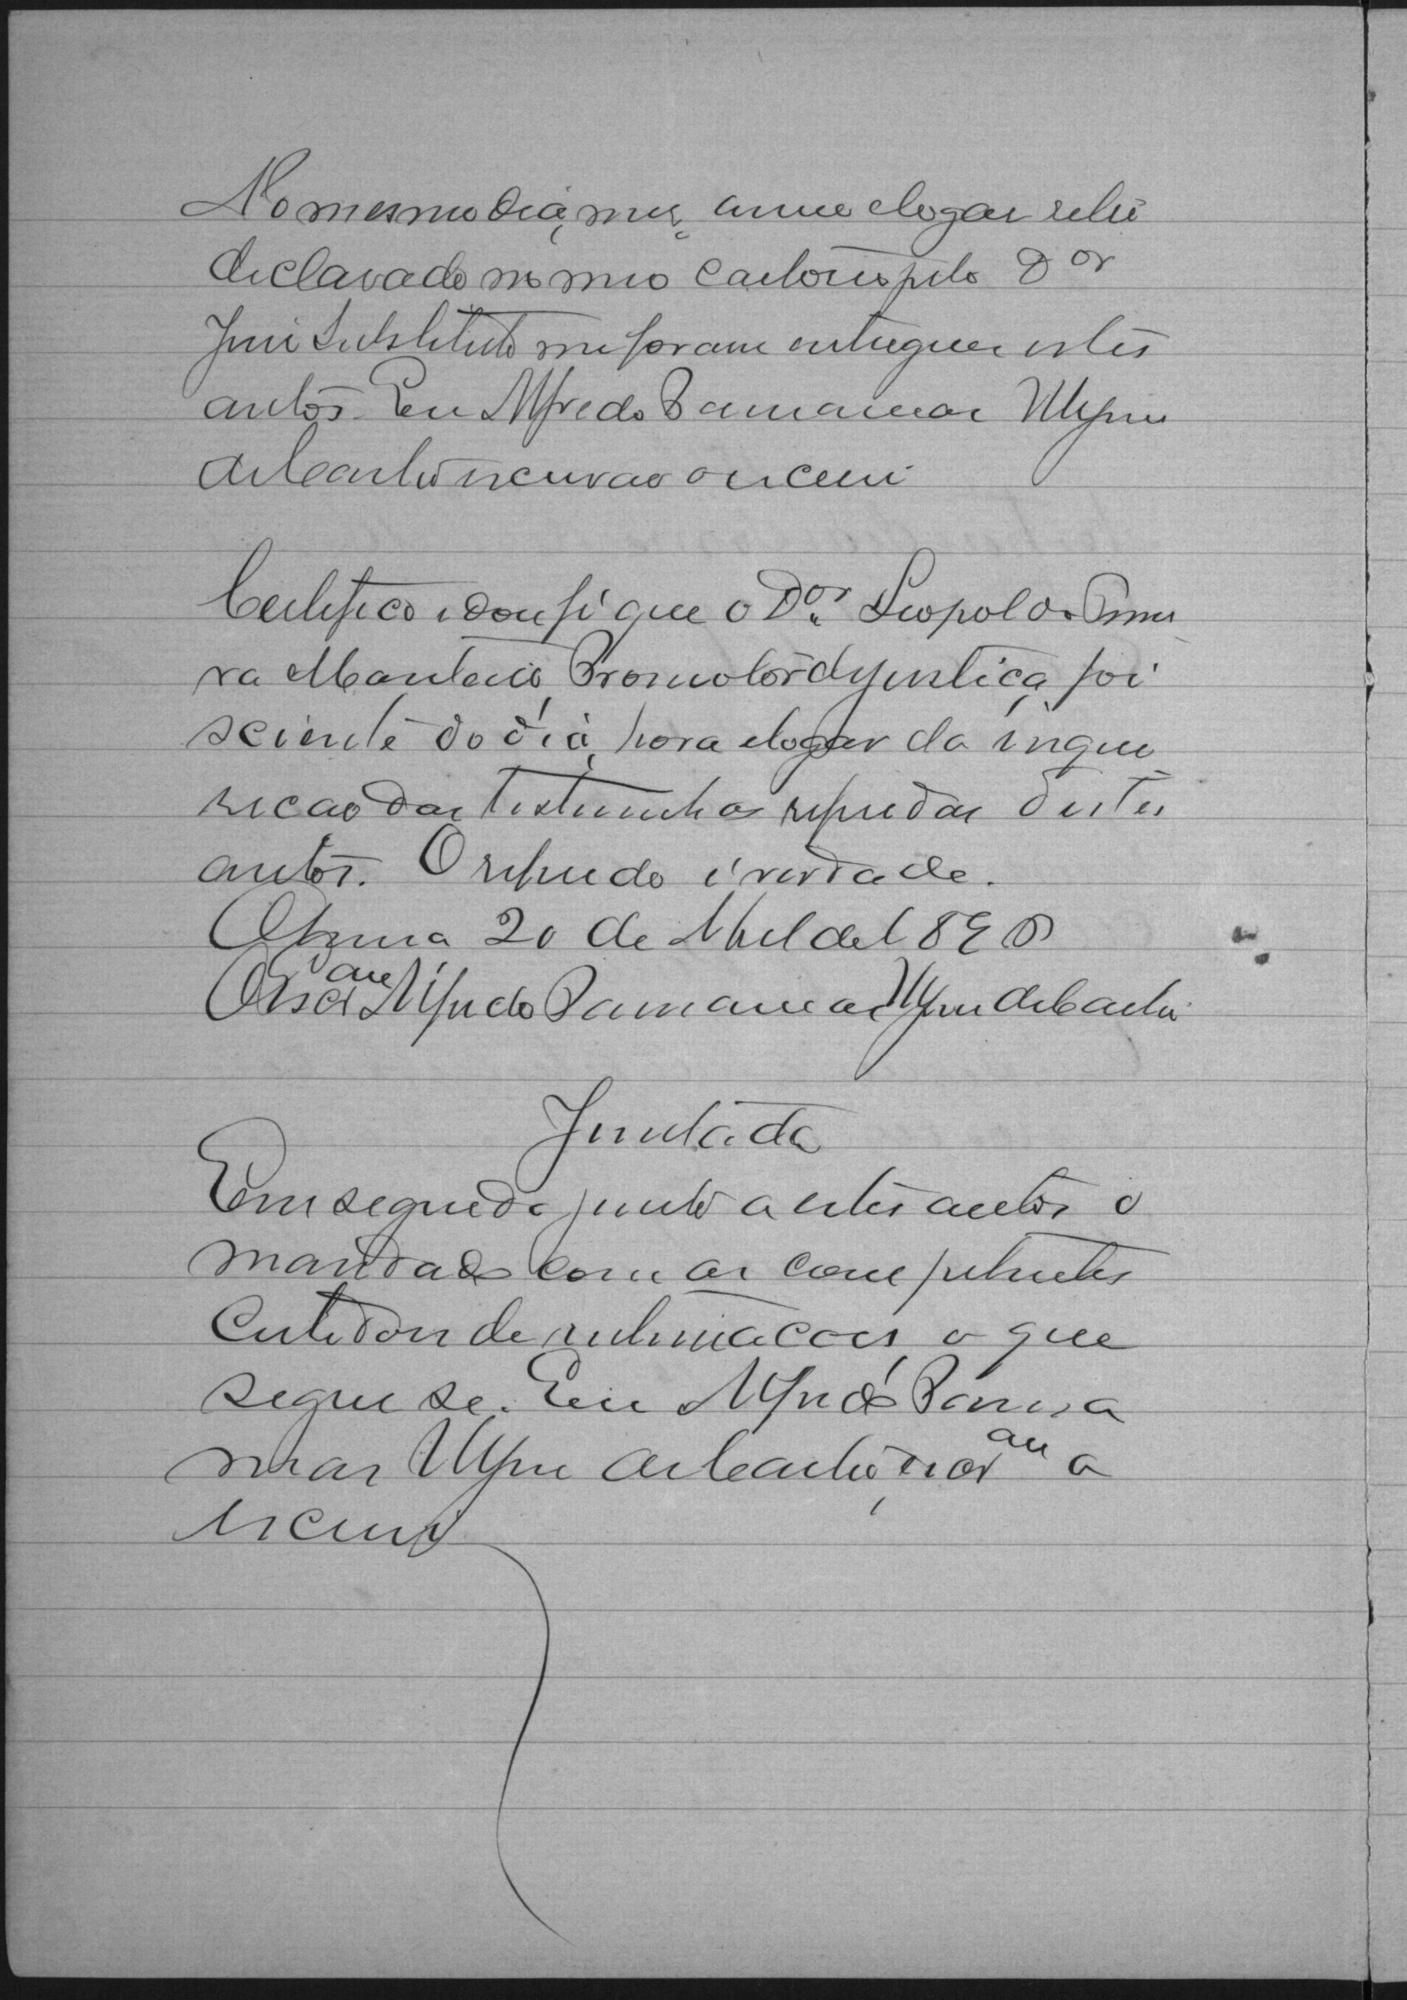 No mesmo dia, mes, anno e logar retro
declarado no meo cartorio pelo Dor
Juis Substituto me foram entregues estes
autos. Eu Alfredo Paranaman
de Castro escrivão o escrevi

Certifico e dou fé que o Dor Leopoldo
ra Monteiro, Promotor da Justiça, foi
sciente do dia, hora e logar da inque
ricão das testemunhas referidas destes
autos. O referido é verdade.
20 de Abril de 1890
O Escram Alfredo de Castro

Juntada
Em seguida junto a estes autos o
mandado com as competentes
certidões de intimações, o que
segue se. Eu Alfredo
de Castro, o
escrevi